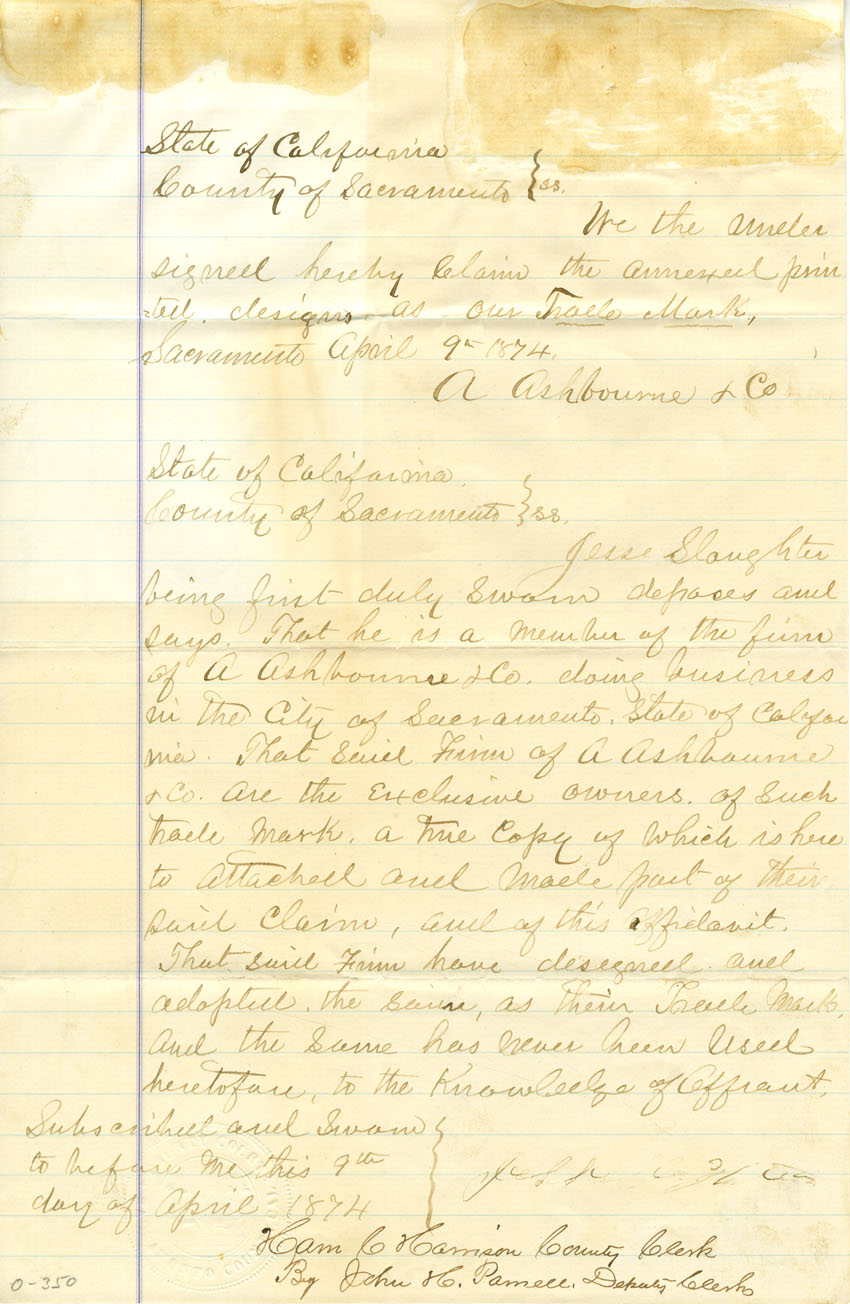 State of California
County of Sacramento } ss.
We the Under
signed hereby Claim the annexed prin
ted designs as our Trade Mark,
Sacramento April 9th 1874.
A Ashbourne & Co
State of California
County of Sacramento } ss.
Jesse Slaughter
being first duly Sworn deposes and
says. That he is a Member of the firm
of A Ashbourne & Co. doing business
in the City of Sacramento, State of Califor
nia. That Said Firm of A Ashbourne
& Co. are the Exclusive owners. of Such
trade Mark. a True Copy of Which is here
to Attached and Made part of their
said Claim, and of this Affidavit.
That Said Firm have designed and
adopted. the same, as their Trade Mark,
And the Same has Never been Used
heretofore, to the Knowledge of Affiant.
Subscribed and Sworn
to before Me this 9th
day of April 1874
Ham C Harrison County Clerk
By John H. Parnell. Deputy Clerk
0-350